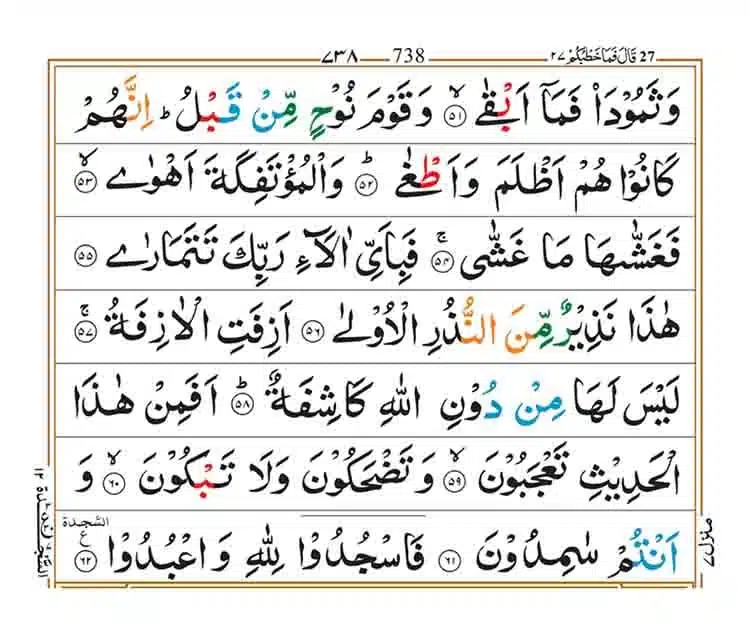 27 قَالَ فَمَا خَطْبُكُمْ ٢٧ 738 ٧٣٨
وَثَمُوْدَا۟ فَمَاۤ اَبْقٰى ۙ‏﴿۵۱﴾ وَقَوْمَ نُوْحٍ مِّنْ قَبْلُ‌ؕ اِنَّهُمْ
كَانُوْا هُمْ اَظْلَمَ وَاَطْغٰى ؕ‏﴿۵۲﴾ وَالْمُؤْتَفِكَةَ اَهْوٰى ۙ‏﴿۵۳﴾
فَغَشّٰٮهَا مَا غَشّٰى‌ ۚ‏﴿۵۴﴾ فَبِاَىِّ اٰلَاۤءِ رَبِّكَ تَتَمَارٰى‏﴿۵۵﴾
هٰذَا نَذِيْرٌ مِّنَ النُّذُرِ الْاُوْلٰى‏﴿۵۶﴾ اَزِفَتِ الْاٰزِفَةُ‌ ۚ‏﴿۵۷﴾
لَيْسَ لَهَا مِنْ دُوْنِ اللّٰهِ كَاشِفَةٌ ؕ‏﴿۵۸﴾ اَفَمِنْ هٰذَا
الْحَدِيْثِ تَعْجَبُوْنَۙ‏﴿۵۹﴾ وَتَضْحَكُوْنَ وَلَا تَبْكُوْنَۙ‏﴿۶۰﴾ وَ
اَنْتُمْ سٰمِدُوْنَ‏﴿۶۱﴾ فَاسْجُدُوْا لِلّٰهِ وَاعْبُدُوْا‏﴿۶۲﴾
السَّجْدَة
ع
منزل ٧
السَّجْدَة ١٢